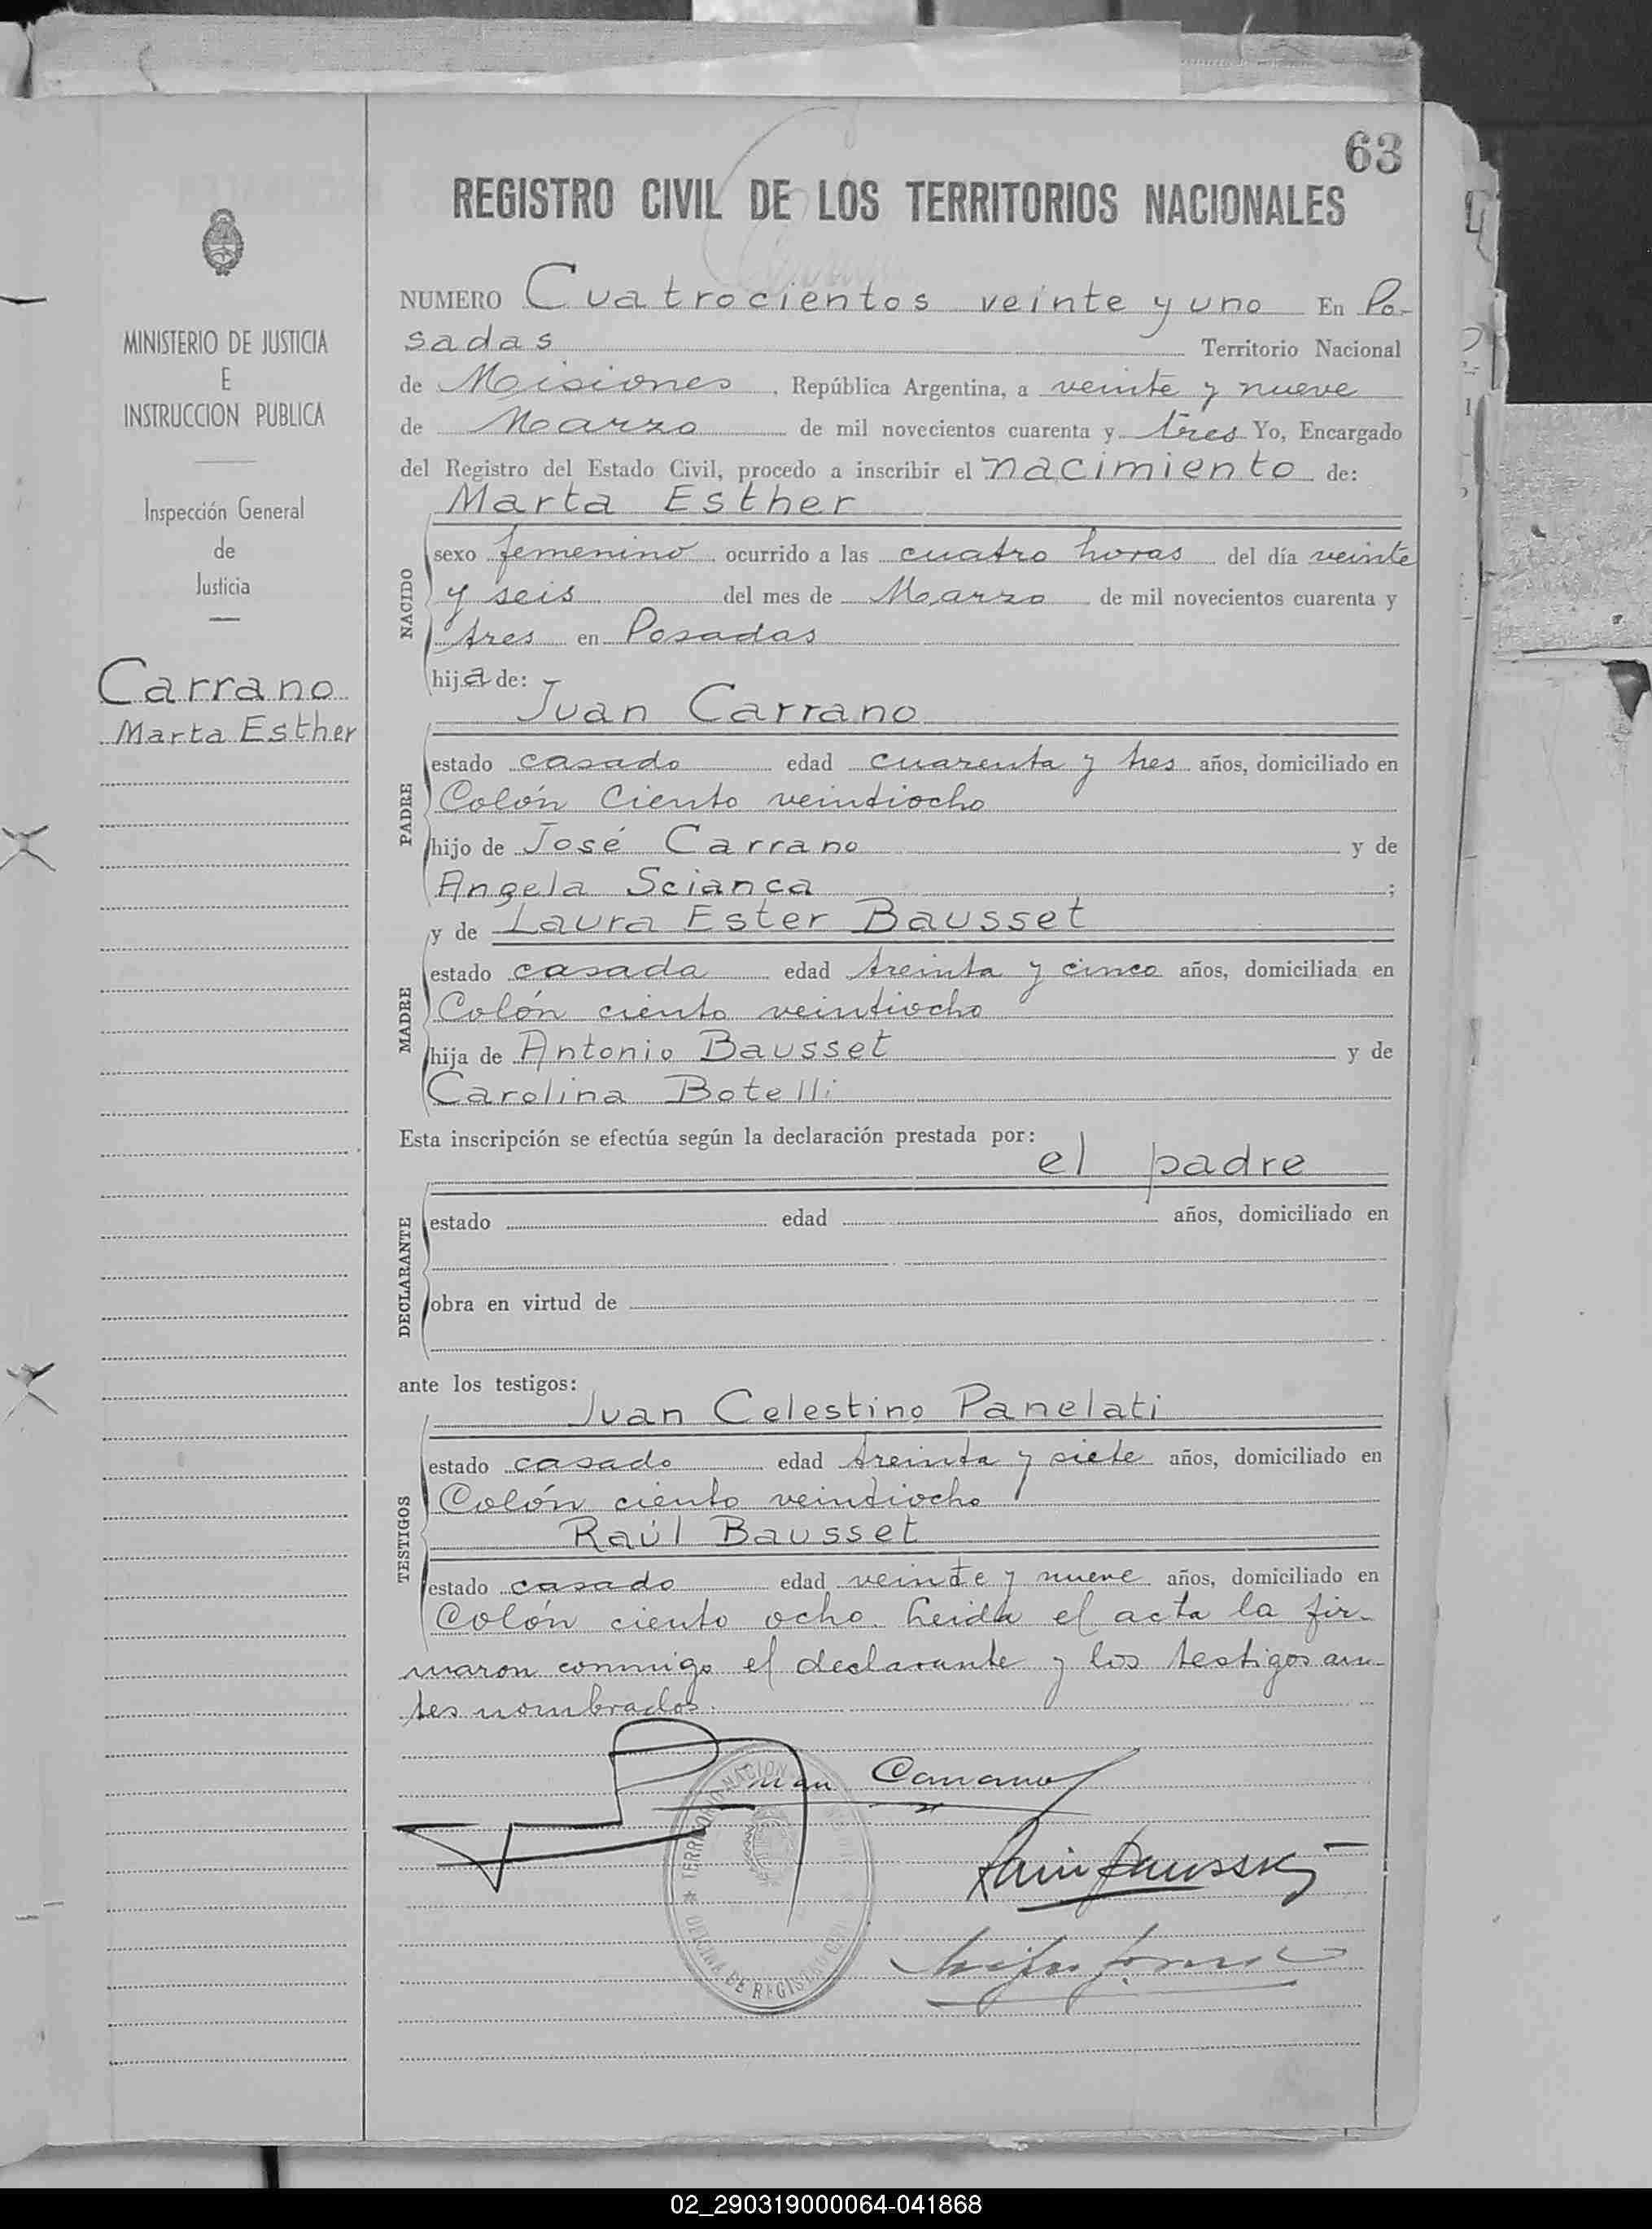 63
REGISTRO CIVIL DE LOS TERRITORIOS NACIONALES
MINISTERIO DE JUSTICIA
E
INSTRUCCION PUBLICA
Inspección General
de
Justicia
Carrano
Marta Esther
NUMERO Cuatrocientos veinte y uno En Po-
sadas Territorio Nacional
de Misiones, República Argentina, a veinte y nueve
de Marzo de mil novecientos cuarenta y tres Yo, Encargado
del Registro del Estado Civil, procedo a inscribir el nacimiento de:
Marta Esther
NACIDO
sexo femenino ocurrido a las cuatro horas del día veinte
y seis del mes de Marzo de mil novecientos cuarenta y
tres en Posadas
hija de:
Juan Carrano
PADRE
estado casado edad cuarenta y tres años, domiciliado en
Colón Ciento veintiocho
hijo de José Carrano y de
Angela Scianca ;
y de Laura Ester Bausset
MADRE
estado casada edad treinta y cinco años, domiciliada en
Colón ciento veintiocho
hija de Antonio Bausset y de
Carolina Botelli
Esta inscripción se efectúa según la declaración prestada por:
el padre
DECLARANTE
estado edad años, domiciliado en
obra en virtud de
ante los testigos:
Juan Celestino Panelati
TESTIGOS
estado casado edad treinta y siete años, domiciliado en
Colón ciento veintiocho
Raúl Bausset
estado casado edad veinte y nueve años, domiciliado en
Colón ciento ocho. Leida el acta la fir-
maron conmigo el declarante y los testigos an-
tes nombrados.
Juan Carrano
Raúl Bausset
OFICINA DE REGISTRO CIVIL
02_290319000064-041868